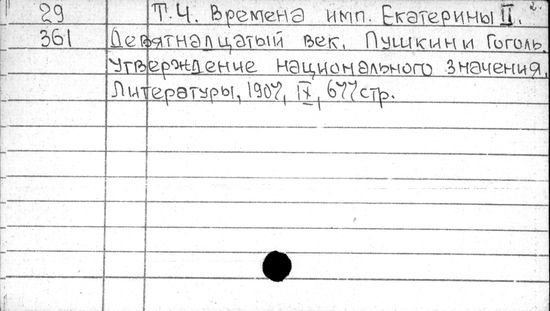 29 Т.4. Времена имп. Екатерины II. 2.
361 Девятнадцатый век. Пушкин и Гоголь.
Утверждение национального значения.
Литературы, 1907, IX, 677 стр.